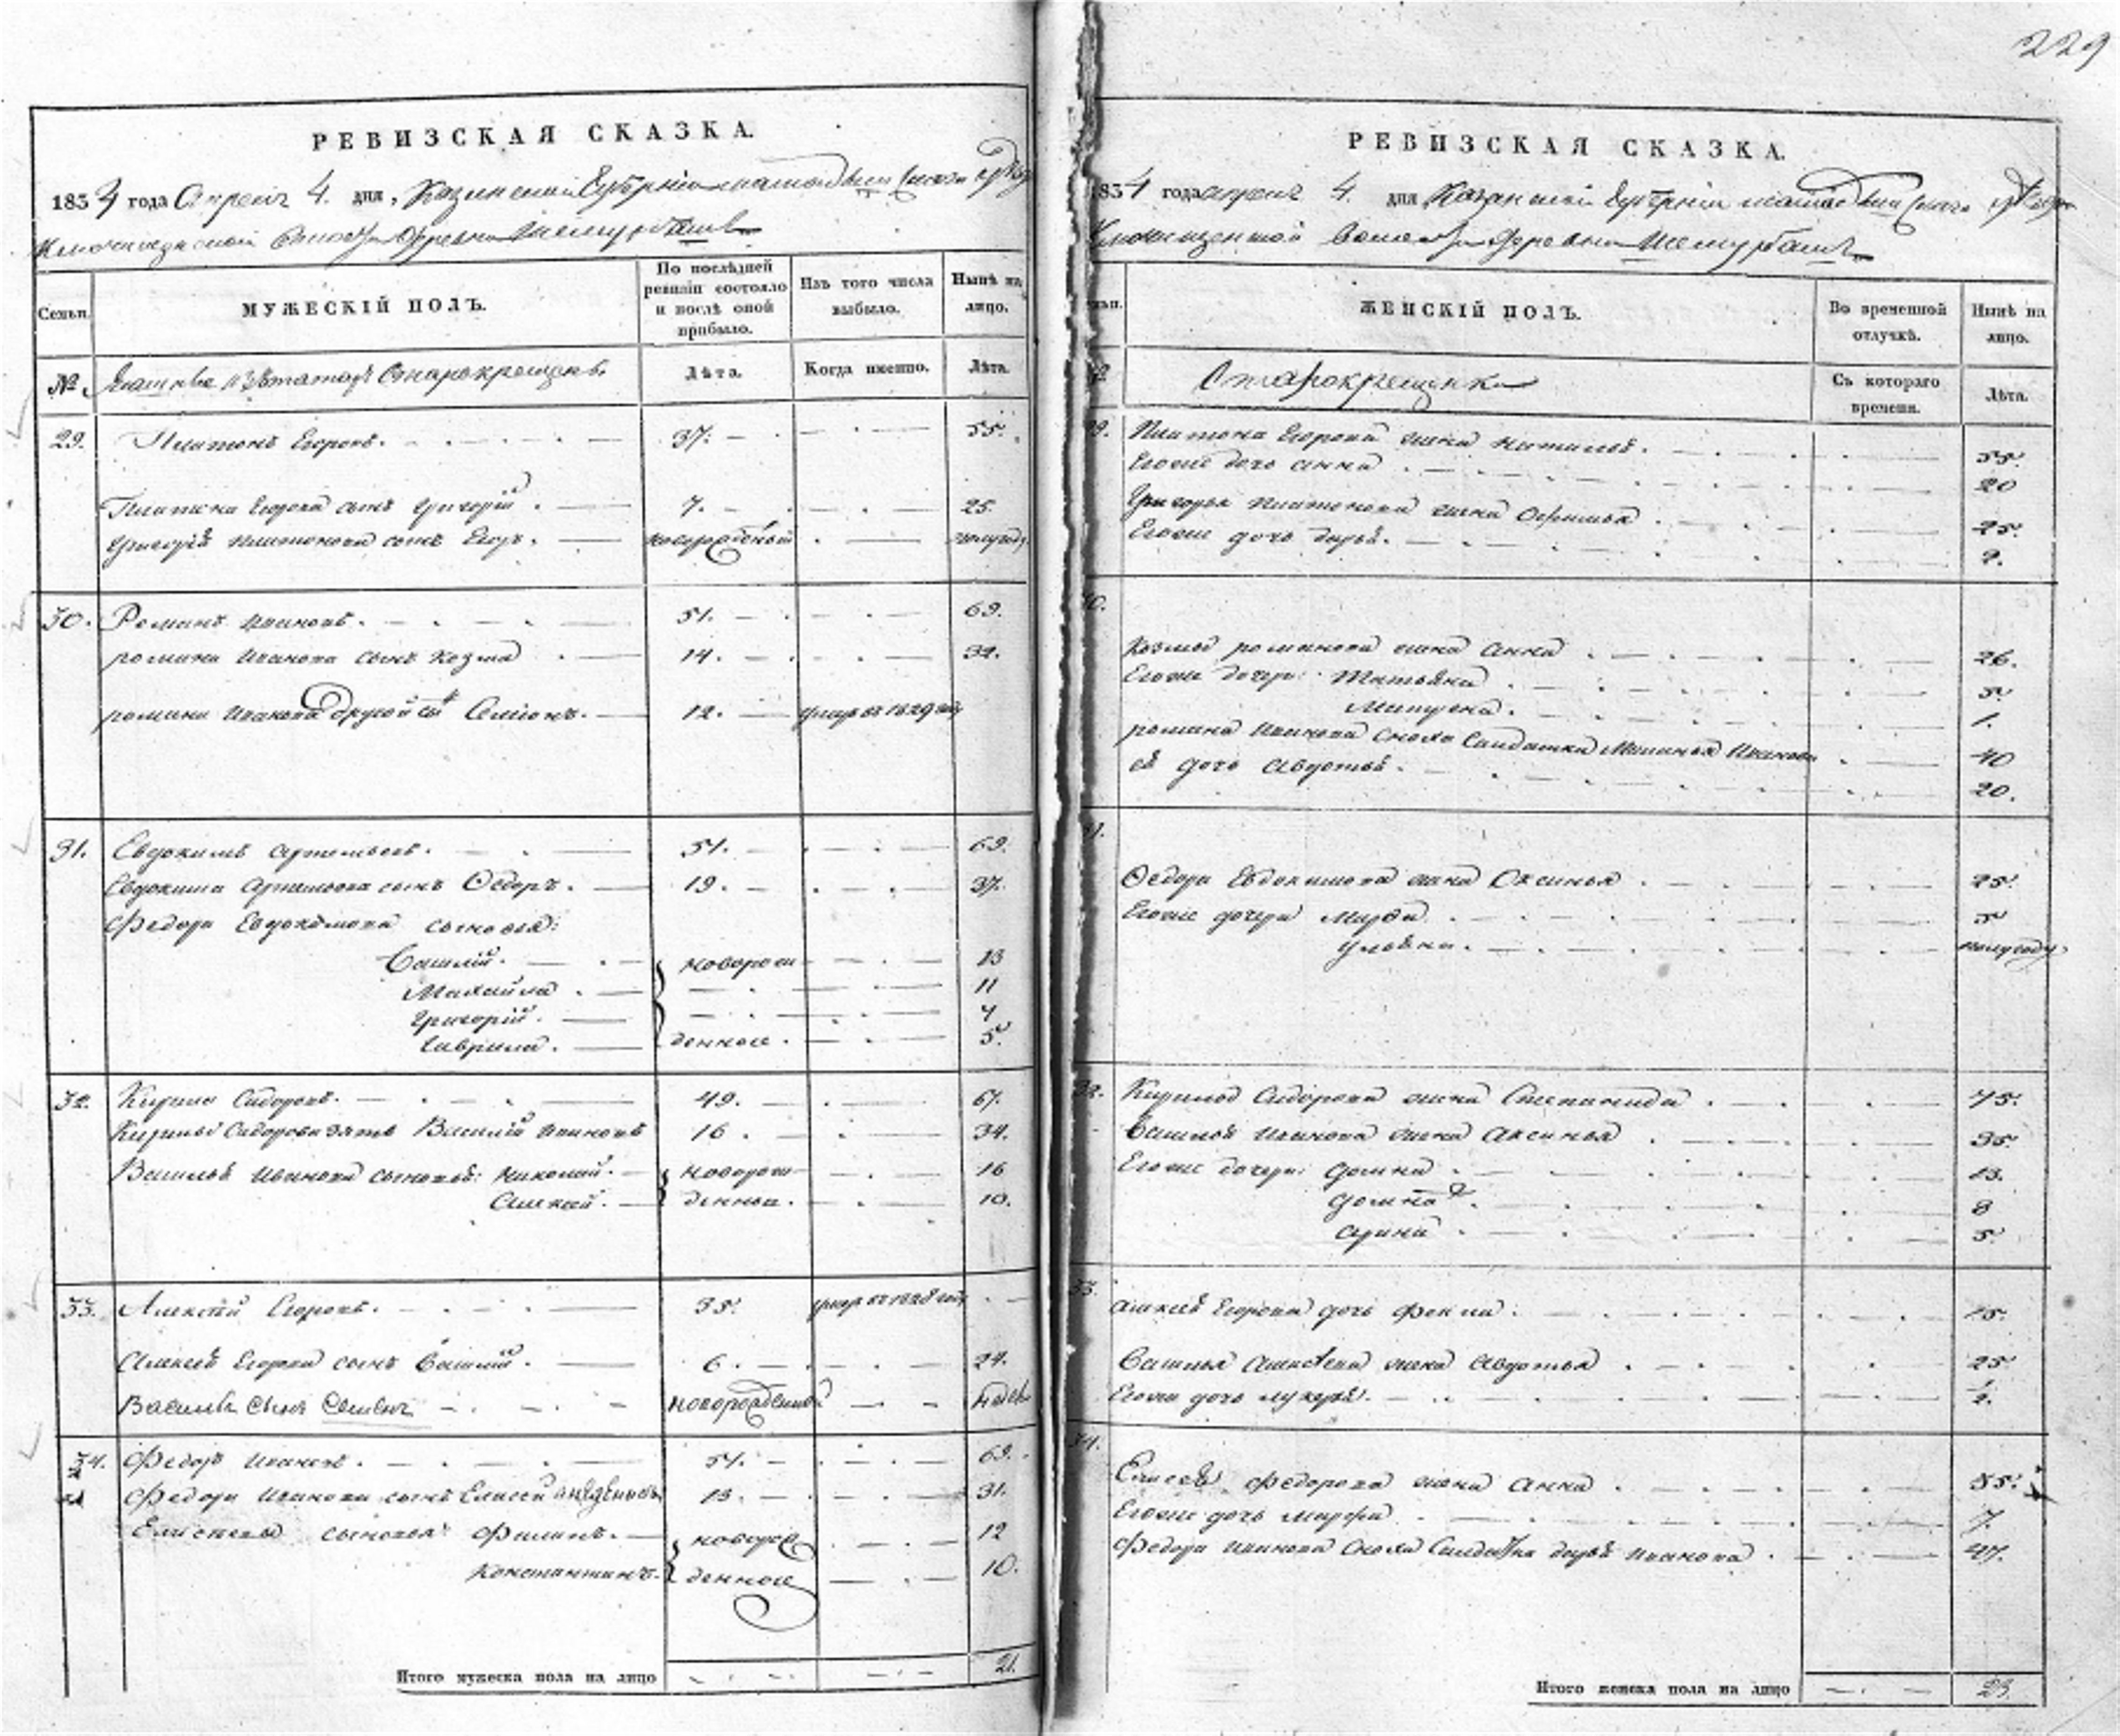 229
РЕВИЗСКАЯ СКАЗКА.
1834 года Апреля 4. дня, Казанской Губернии Мамадышскаго уезда
волости деревни Шемурбашъ
Семьи.
МУЖЕСКІЙ ПОЛЪ.
По послѣдней ревизіи состояло и послѣ оной прибыло.
Изъ того числа выбыло.
Нынѣ на лицо.
№
изъ татаръ Старокрещенъ.
Лѣта.
Когда именно.
Лѣта.
29. Платонъ Егоровъ. 37. 55.
Платона Егорова сынъ Григорій. 7. 25.
Григорія Платонова сынъ Егоръ. новорожденный полугоду
30. Романъ Ивановъ. 51. 69.
Романа Иванова сынъ Козма 14. 32.
Романа Иванова другой сынъ Семіонъ. 12. умеръ въ 1829 году
31. Евдокимъ Артемьевъ. 51. 69.
Евдокима Артемьева сынъ Ѳедоръ. 19. 37.
Федора Евдокимова сыновья:
Василій. новорож 13
Михайла. 11
Григорій. 7
Гаврила. денные. 5
32. Кирила Сидоровъ. 49. 67.
Кирилы Сидорова зять Василій Ивановъ 16. 34.
Василья Иванова сыновья: Николай. новорож 16
Алексей. денныя. 10.
33. Алексѣй Егоровъ. 35. умеръ въ 1828 году
Алексея Егорова сынъ Василій. 6. 24.
Василья сынъ Семенъ новорожденный
34. Федоръ Ивановъ. 51. 69.
Федора Иванова сынъ Елисей 13. 31.
Елисеевы сыновья Филипъ. новорож 12
Константинъ. денные 10.
Итого мужеска пола на лицо 21.
РЕВИЗСКАЯ СКАЗКА.
1834 года апреля 4. дня Казанской Губерніи Мамадышскаго уезда
волости деревни Шемурбашъ
ЖЕНСКІЙ ПОЛЪ.
Во временной отлучкѣ.
Нынѣ на лицо.
Старокрещенка
Съ котораго времени.
Лѣта.
29. Платона Егорова жена Наталья. 55
Егоже дочь Анна 20
Григорья Платонова жена Офимья 25
Егоже дочь Дарья. 2.
30.
Козмы Романова жена Анна 26.
Егоже дочери: Татьяна 5
1.
Романа Иванова сноха Салдатка Маланья Иванова 40
ей дочь Авдотья. 20.
31.
Ѳедора Евдокимова жена Оксинья 25
Егоже дочери Марѳа 5
Ульяна. полугоду.
32. Кирилы Сидорова жена Степанида 75.
Василья Иванова жена Аксинья 35
Егоже дочери: Домна 13.
Домна 2 8
Арина 5
33. Алексея Егорова дочь Фекла. 15.
Василья Алексеева жена Авдотья 25
Егоже дочь Лукерья. ½.
34.
Елисея Федорова жена Анна 35.
Егоже дочь Марфа 7.
Федора Иванова сноха Салдатка Дарья Иванова 47.
Итого женска пола на лицо 23.